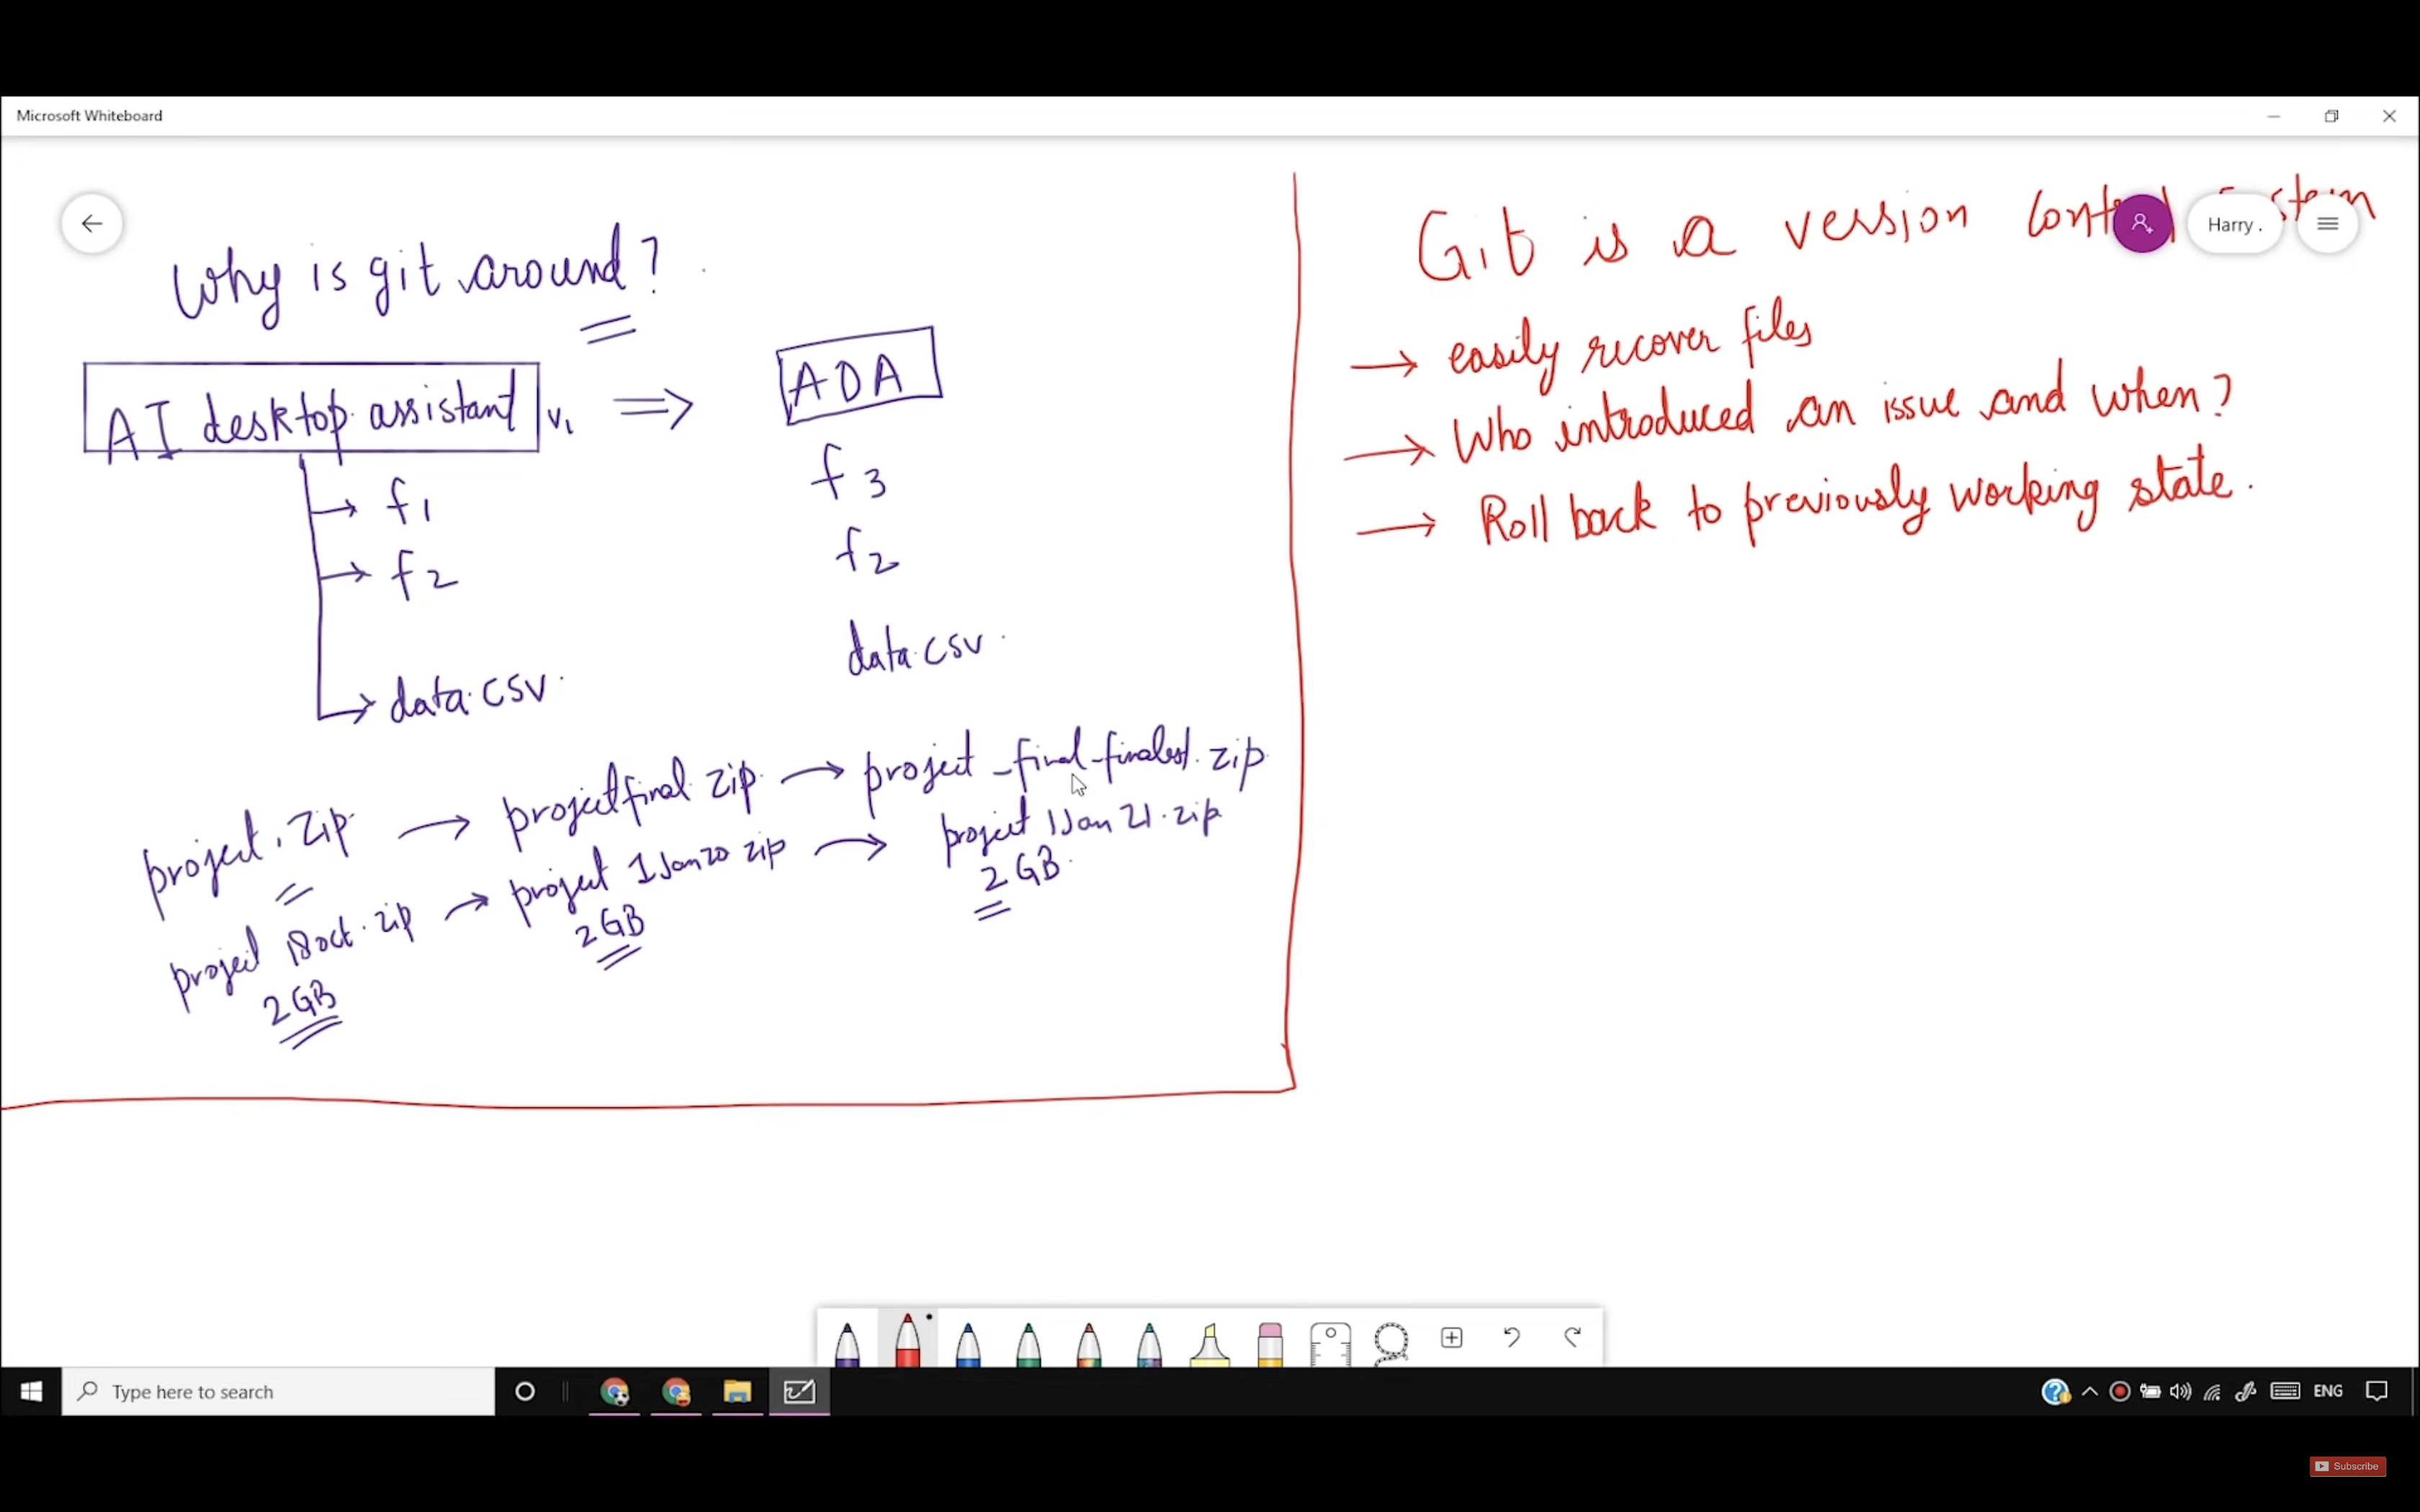 Microsoft Whiteboard
Why is git around?
AI desktop assistant v1 => ADA
f1
f2
data.csv
f3
f2
data.csv
project.zip → projectfinal.zip → project_final_finalest.zip
project 18oct.zip → project 1Jan20 zip → project 1Jan21.zip
2GB
2GB
2GB
Git is a version
Harry .
→ easily recover files
→ Who introduced an issue and when?
→ Roll back to previously working state.
Type here to search
ENG
Subscribe